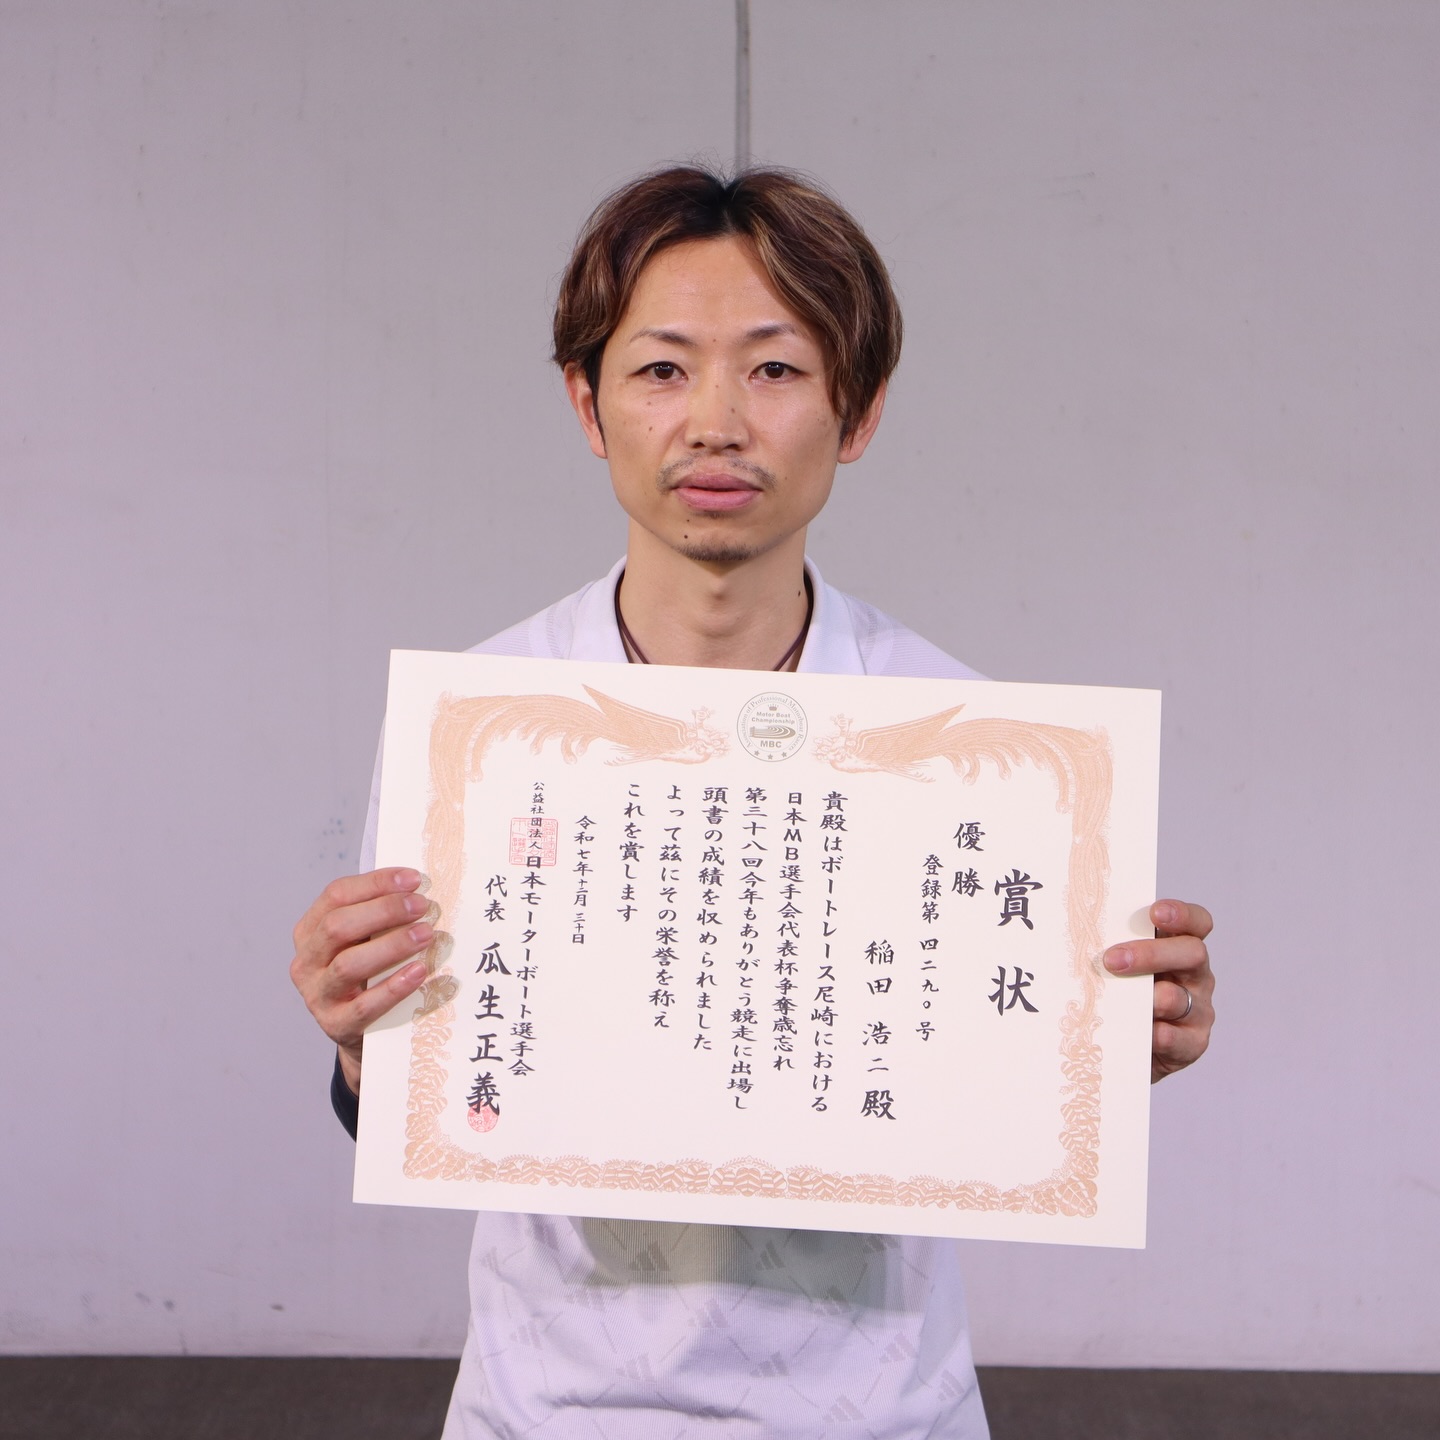 賞状
優勝
登録第四二九〇号
稲田浩二殿
貴殿はボートレース尼崎における
日本MB選手会代表杯争奪歳忘れ
第三十八回今年もありがとう競走に出場し
頭書の成績を収められました
よって茲にその栄誉を称え
これを賞します
令和七年十二月三十日
公益社団法人日本モーターボート選手会
代表 瓜生正義
Association of Professional Motorboat Racers
Motor Boat
Championship
MBC